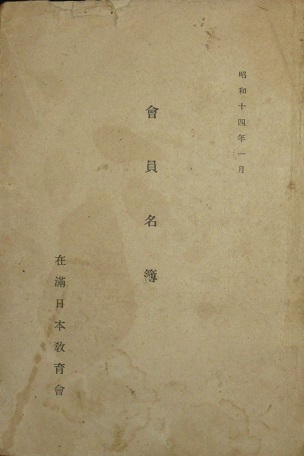 昭和十四年一月
會員名簿
在滿日本敎育會